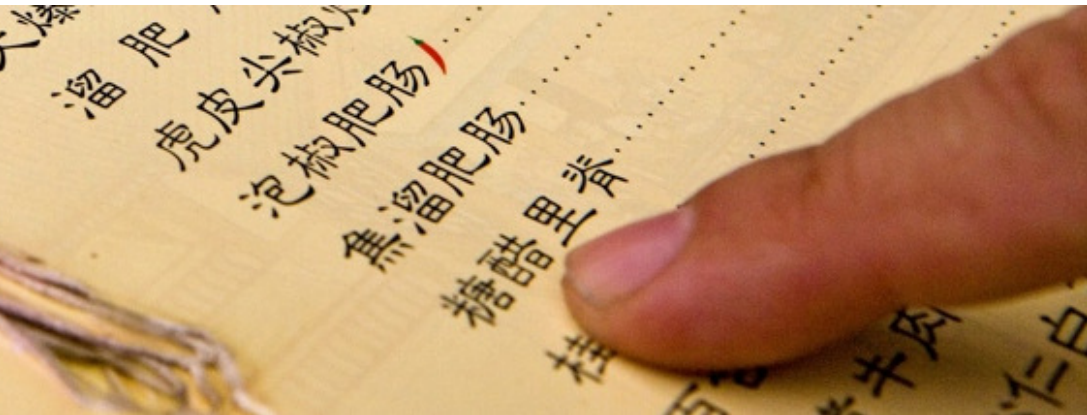 爆
溜肥
虎皮尖椒
泡椒肥肠
焦溜肥肠
糖醋里脊
桂
百
牛肉
仁白